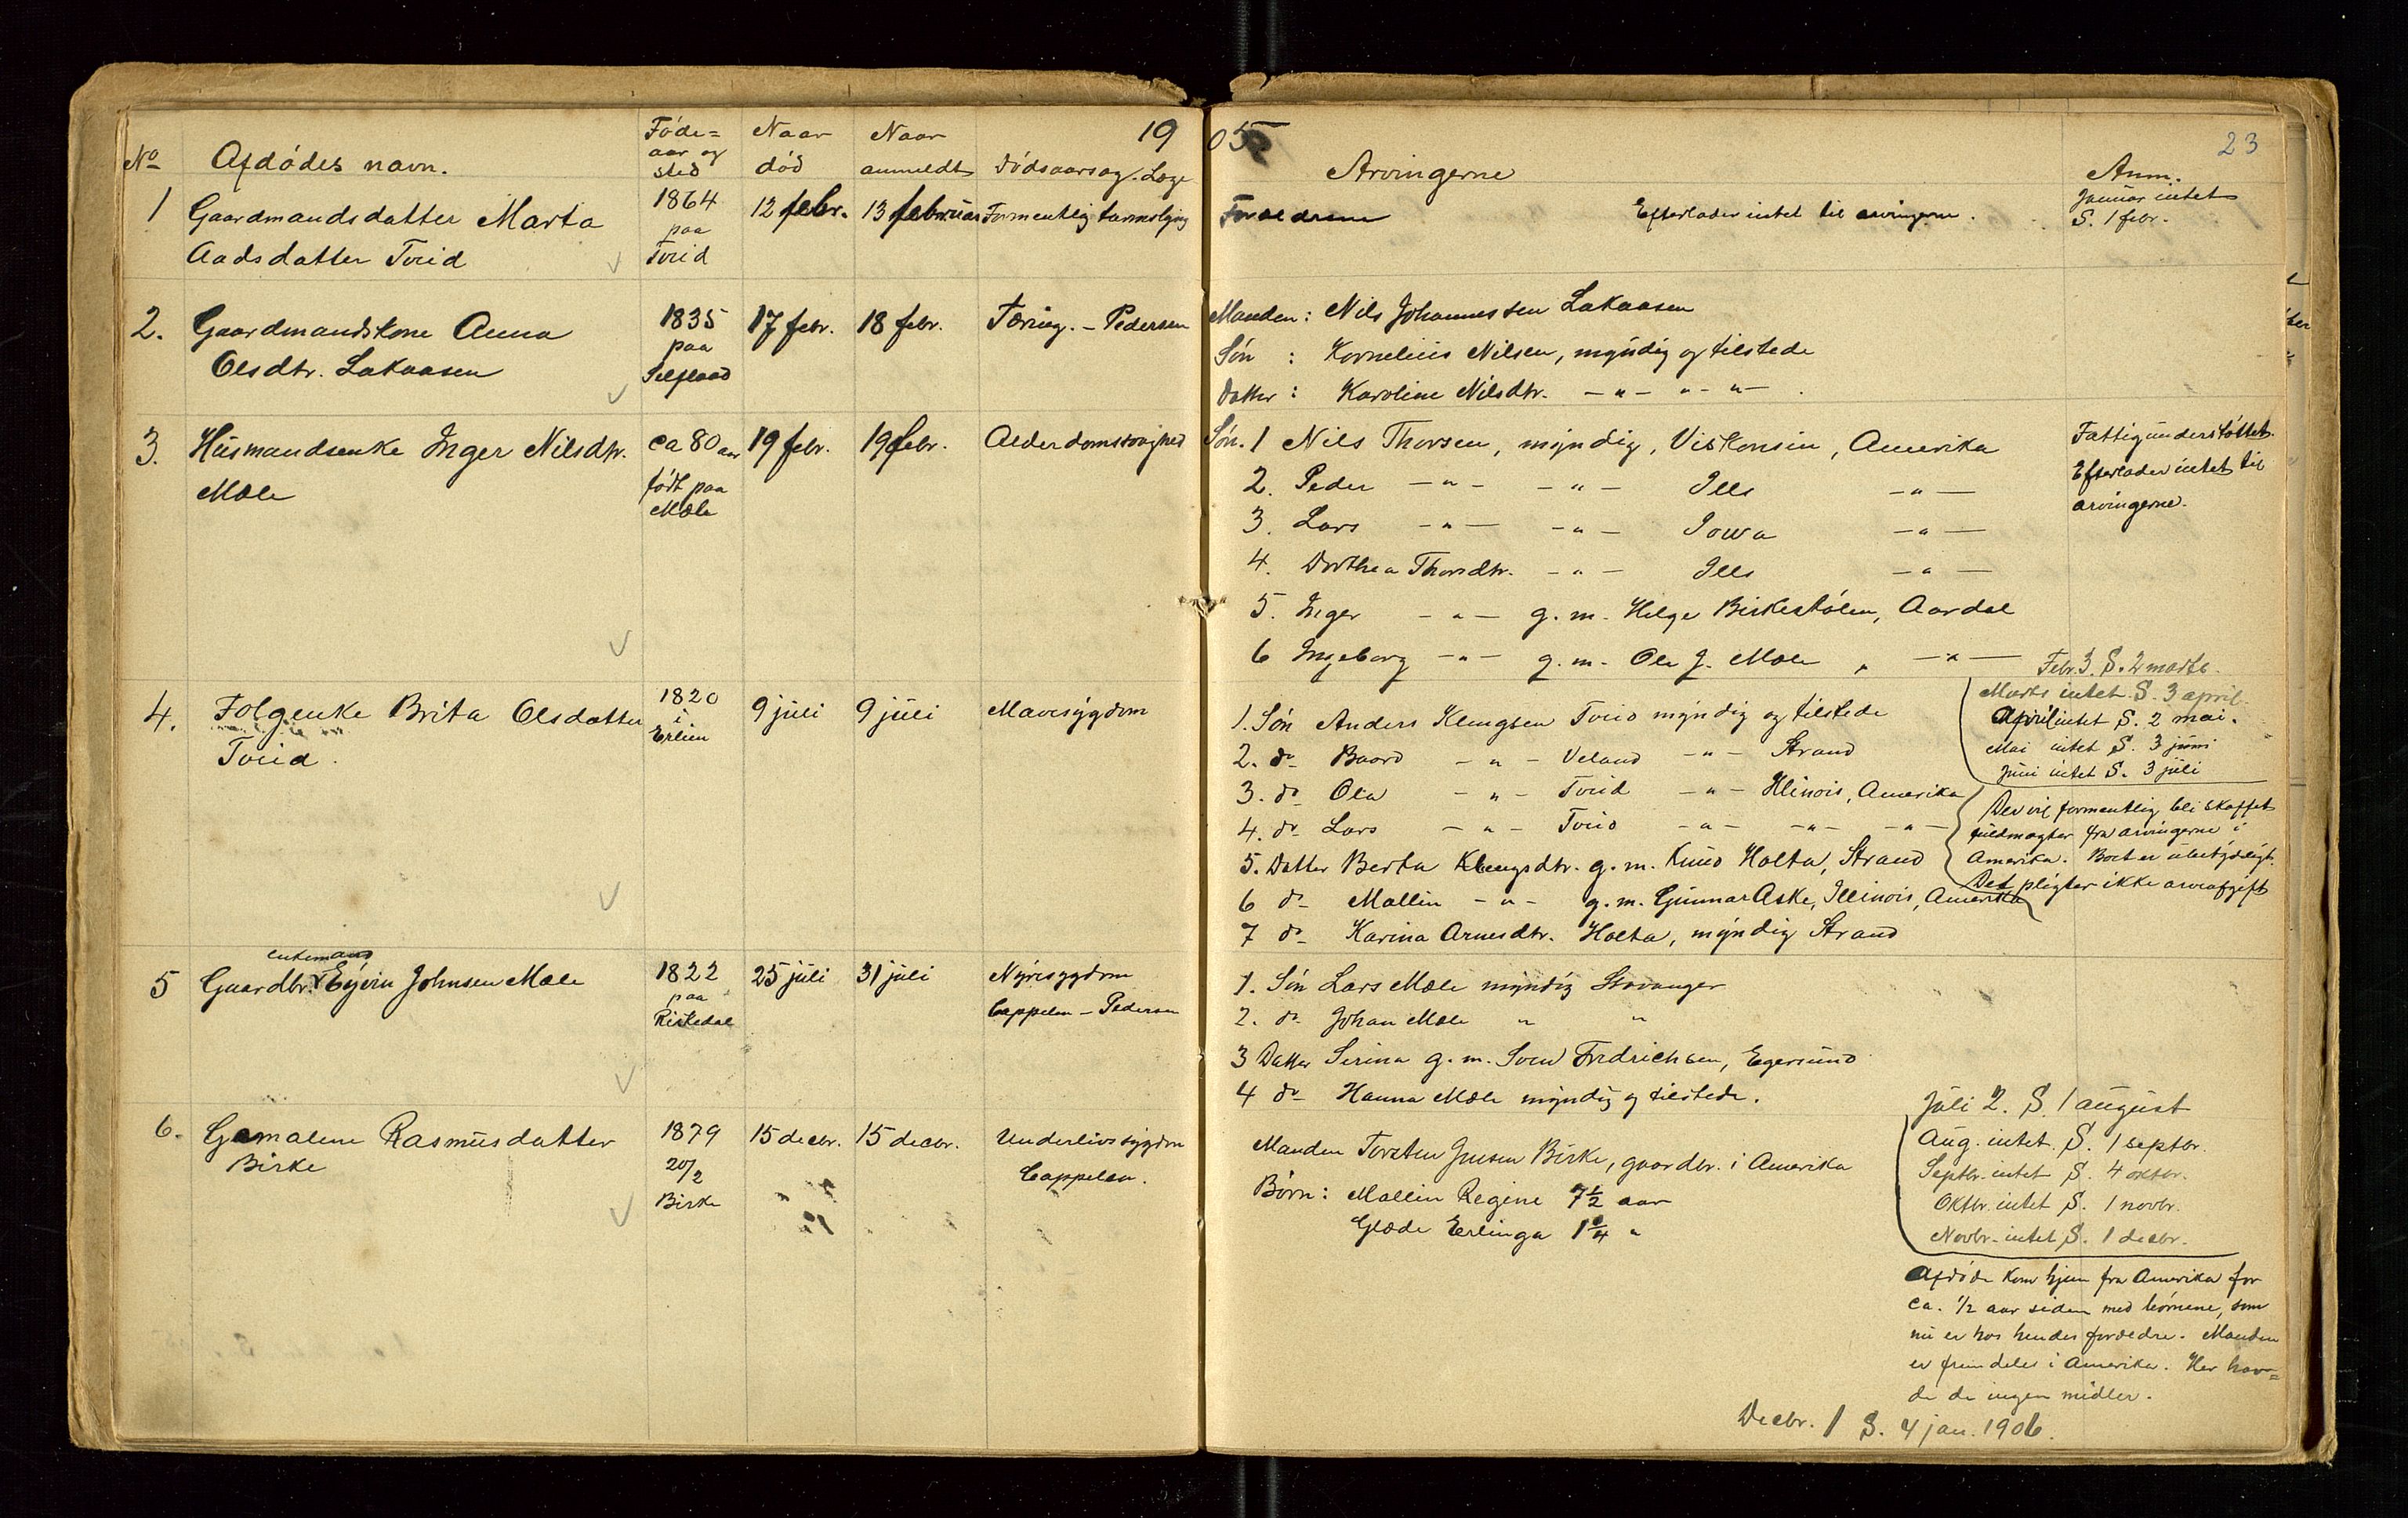 1905
23
No Afdødes navn. Føde= aar og sted Naar død Naar anmeldt Dødsaarsag. Læge Arvingerne Anm.
1 Gaardmandsdatter Marta 1864 12 febr. 13 februar Formentlig tarmslyng Forældrene Efterlader intet til arvingerne. Januar intet
Aadsdatter Tveid paa Tveid S. 1 febr.
2. Gaardmandskone Anna 1835 17 febr. 18 febr. Tæring. - Pedersen Manden: Nils Johannessen Lakaasen
Olsdtr. Lakaasen paa Selflaad Søn : Kornelius Nilsen, myndig og tilstede
Datter : Karoline Nilsdtr. - " - " - " -
3. Husmandsenke Inger Nilsdtr. ca 80 aar 19 febr. 19 febr. Alderdomssvaghed Søn. 1 Nils Thorsen, myndig, Viskonsin, Amerika Fattigunderstøttet.
Mæle født paa Mæle 2. Peder - " - - " - Ills - " - Efterlader intet til
3. Lars - " - - " - Iowa - " - arvingerne.
4. Dorthea Thorsdtr. - " - Ills - " -
5. Inger - " - g. m. Helge Birkestølen, Aardal
6 Ingeborg - " - g. m. Ole J. Mæle " - " - Febr. 3. S. 2 marts.
Marts intet S. 3 april
April intet S. 2 mai.
Mai intet S. 3 juni
Juni intet S. 3 juli
4. Folgenke Brita Olsdatter 1820 9 juli 9 juli Mavesygdom 1. Søn Anders Klengsen Tveid myndig og tilstede
Tveid. i Erlien 2. do Baard - " - Veland - " - Strand
3. do Ola - " - Tveid - " - Illinois, Amerika
4. do Lars - " - Tveid - " - - " - - " -
5. Datter Berta Klengsdtr. g. m. Knud Holta, Strand
6 do Mallin - " - g. m. Gunnar Aske, Illinois, Amerika
7 do Karina Arnesdtr. Holta, myndig Strand
Der vil formentlig bli skaffet
fuldmagter fra arvingerne i
Amerika. Boet er ubetydeligt.
Det pligter ikke arveafgift
enkemand
5 Gaardbr. Eyvin Johnsen Mæle 1822 25 juli 31 juli Nyresygdom 1. Søn Lars Mæle myndig Stavanger
paa Riskedal Cappelen - Pedersen 2. do Johan Mæle " "
3 Datter Serina g. m. Sven Fredrichsen, Egersund
4 do Hanna Mæle myndig og tilstede.
Juli 2. S. 1 august
Aug. intet S. 1 septbr.
Septbr. intet S. 4 oktbr.
Oktbr. intet S. 1 novbr.
Novbr. intet S. 1 decbr.
6. Gamaline Rasmusdatter 1879 15 decbr. 15 decbr. Underlivssygdom Manden Torsten Jensen Birke, gaardbr. i Amerika
Birke 20/2 Birke Cappelen. Børn: Mallin Regine 7½ aar
Glæde Erlinga 1¼ "
Afdøde kom hjem fra Amerika for
ca. ½ aar siden med børnene, som
nu er hos hendes forældre. Manden
er fremdeles i Amerika. Her hav=
de de ingen midler.
Decbr. 1 S. 4 jan. 1906.